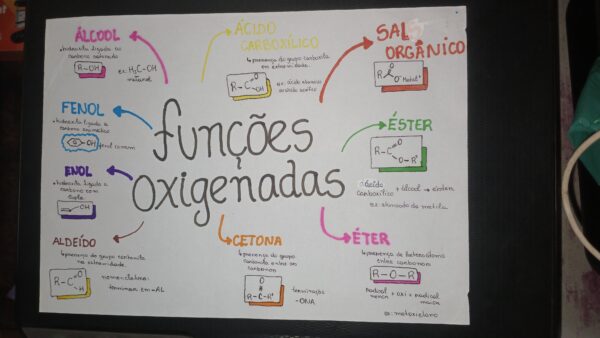 ÁLCOOL
• hidroxila ligada a
carbono saturado
R-OH
ex: H₃C-OH
metanol
ÁCIDO
CARBOXÍLICO
↳ presença do grupo carboxila
na extremidade.
R-C
O
OH
ex: ácido
SAL
ORGÂNICO
R
O
O
Metal⁺
FENOL
• hidroxila ligada a
carbono aromático
OH
fenol comum
funções
oxigenadas
ÉSTER
R-C
O
O-R'
ácido
carboxílico
+ álcool →
ex:
de metila
ENOL
• hidroxila ligada a
carbono com
dupla
OH
ALDEÍDO
↳ presença do grupo carbonila
na extremidade.
R-C
O
H
nomenclatura:
terminar em -AL
CETONA
↳ presença do grupo
carbonila entre os
carbonos
O
R-C-R'
terminação
-ONA
ÉTER
↳ presença de heteroátomo
entre carbonos
R-O-R'
radical
menor
+ OXI +
radical
maior